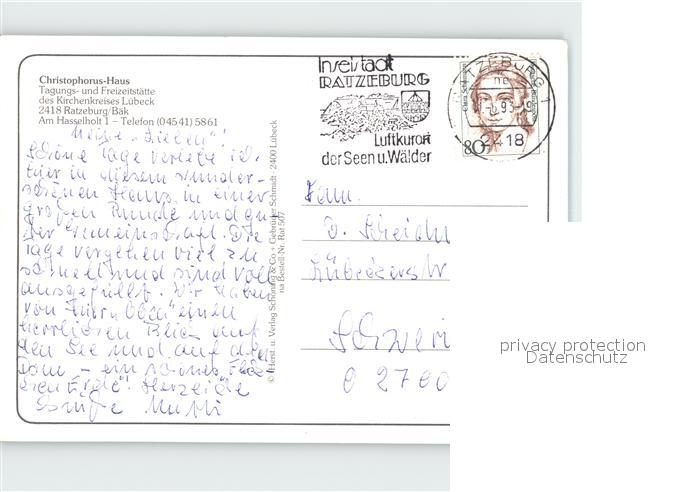 Christophorus-Haus
Tagungs- und Freizeitstätte
des Kirchenkreises Lübeck
2418 Ratzeburg/Bäk
Am Hasselholt 1 – Telefon (04541) 5861
Meine "Lieben"!
Schöne Tage verlebe ich
hier in diesem wunder-
schönen Haus, in einer
großen Runde und guter
Gemeinschaft. Die
Tage vergehen viel zu
schnell und sind voll
ausgefüllt. Wir haben
von hier "oben" einen
herrlichen Blick auf
den See und auf den
Dom – ein schönes
Erde! Herzliche
Grüße Mutti
© Herst. u. Verlag Schöning & Co + Gebrüder Schmidt · 2400 Lübeck
na Bestell-Nr. Rat 507
Inselstadt
RATZEBURG
Luftkurort
der Seen u. Wälder
RATZEBURG 1
2418
Clara Schumann
80
Fam.
D.
Schwerin
O 2700
privacy protection
Datenschutz